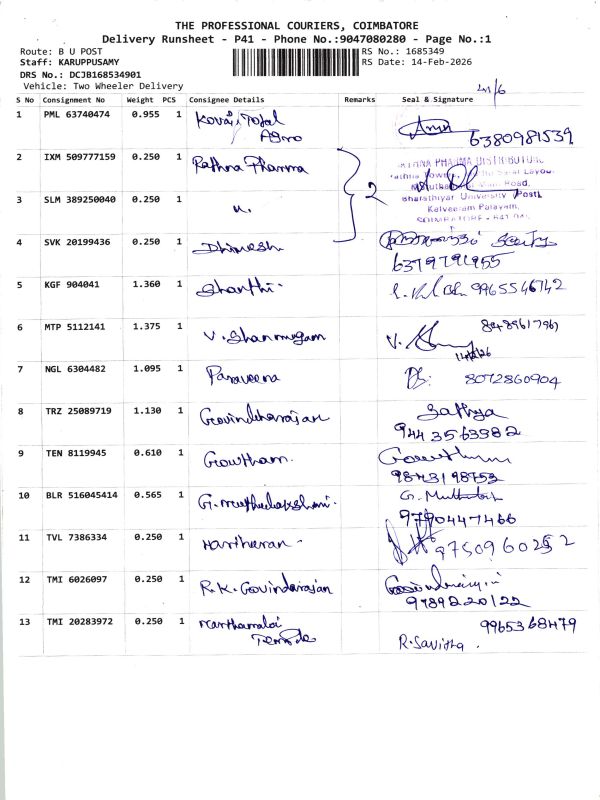 THE PROFESSIONAL COURIERS, COIMBATORE
Delivery Runsheet - P41 - Phone No.:9047080280 - Page No.:1
Route: B U POST
RS No.: 1685349
Staff: KARUPPUSAMY
RS Date: 14-Feb-2026
DRS No.: DCJB168534901
Vehicle: Two Wheeler Delivery
S No Consignment No Weight PCS Consignee Details Remarks Seal & Signature
1 PML 63740474 0.955 1 Kovai Total
Agro
6380981539
2 IXM 509777159 0.250 1 Rathna Pharma
2
RATHNA PHARMA DISTRIBUTORS
Road,
Bharathiyar University Post,
Kalveeram Palayam,
COIMBATORE - 641 046
3 SLM 389250040 0.250 1 u.
4 SVK 20199436 0.250 1 Dhinesh
6379791955
5 KGF 904041 1.360 1 Shanthi
9965546742
6 MTP 5112141 1.375 1 V. Shanmugam
V.
14/2/26
7 NGL 6304482 1.095 1 Paraveena
8072860904
8 TRZ 25089719 1.130 1 Govindharajan
Sathya
9443563982
9 TEN 8119945 0.610 1 Gowtham.
Gowtham
9843198753
10 BLR 516045414 0.565 1 G. muthulakshmi.
9790447466
11 TVL 7386334 0.250 1 Hariharan
9750960252
12 TMI 6026097 0.250 1 R.K. Govindarajan
9789220122
13 TMI 20283972 0.250 1 Marthamalai
Temple
9965368479
R. Savitha.